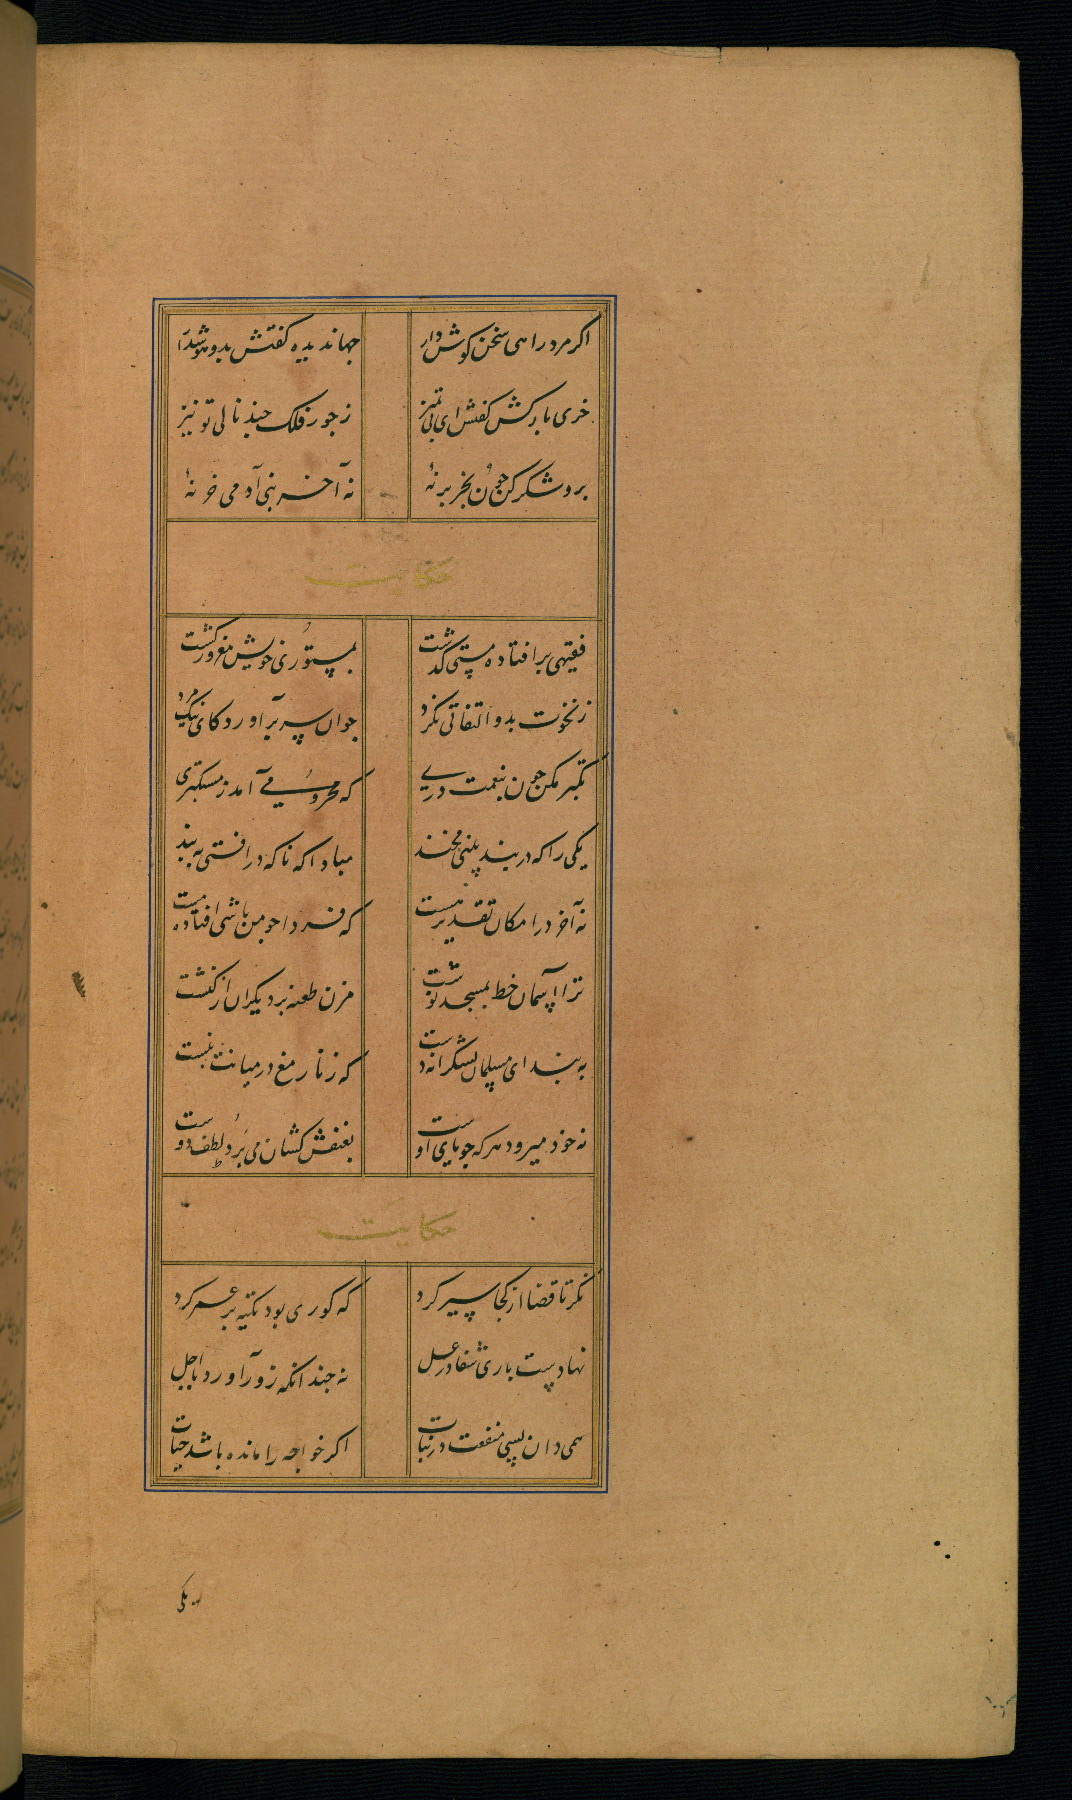 اکر مرد راهی سخن کوش دار جهاندیده کفتش بدو هوشدار
خری بارکش کفتش ای بی تمیز ز جور فلک چند نالی تو نیز
برو شکر کن چون بخر بر نهٔ نه آخر بنی آدمی خر نهٔ
حکایت
فقیهی بر افتاده مستی کذشت بمستوری خویش مغرور کشت
ز نخوت بدو التفاتی نکرد جوان سر برآورد کای نیک مرد
تکبر مکن چون بنعمت دری که محرومی آمد ز مستکبری
یکی را که در بند بینی مخند مبادا که ناکه در افتی به بند
نه آخر در امکان تقدیر هست که فردا چو من باشی افتاده مست
ترا آسمان خط بمسجد نوشت مزن طعنه بر دیکران از کنشت
به بند ای مسلمان بشکرانه دست که زنار مغ در میانت نبست
نه خود میرود هر که جویای اوست بعنفش کشان می برد لطف دوست
حکایت
نکر تا قضا از کجا سیر کرد که کوری بود تکیه بر غیر کرد
نهادست باری شفا در عسل نه چندانکه زور آورد با اجل
همی دان بسی منفعت در نبات اکر خواجه را مانده باشد حیات